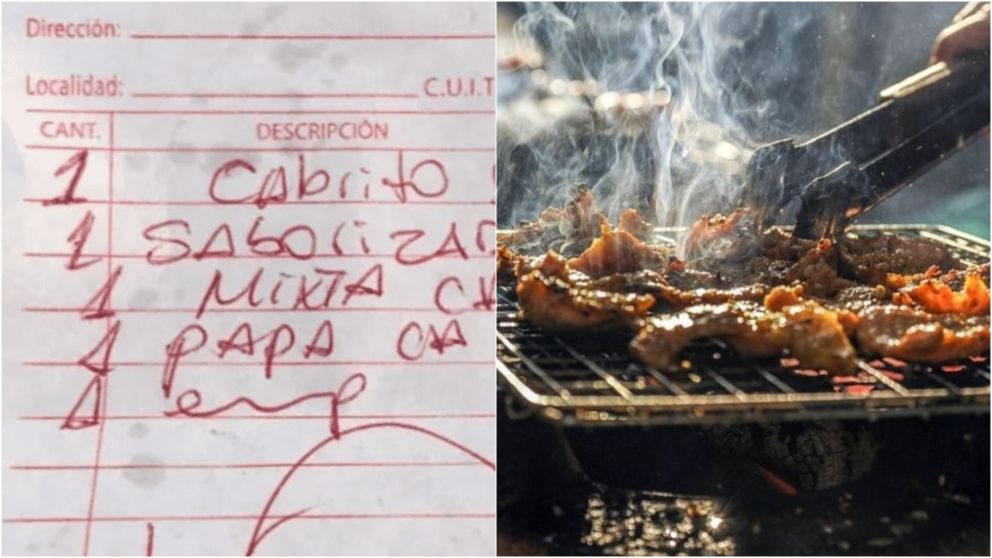 Dirección:
Localidad: C.U.I.T
CANT. DESCRIPCIÓN
1 CAbrito
1 SAborizAr
1 MiXTA CH
1 PAPA CA
1 emp